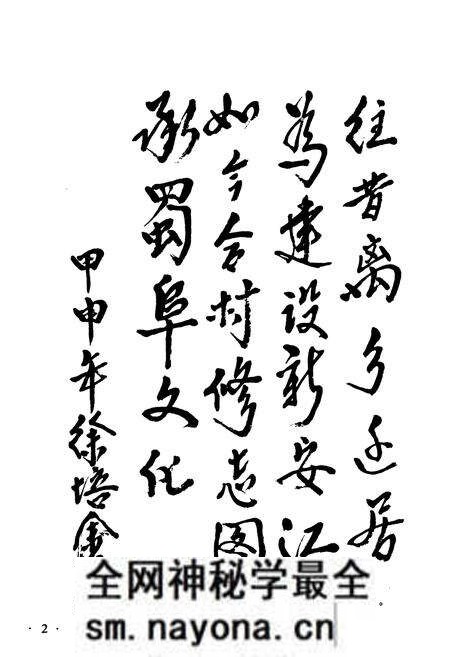 往昔离乡迁居
為建设新安江
如今合村修志图
承蜀阜文化
甲申年徐培金
全网神秘学最全
sm.nayona.cn
· 2 ·